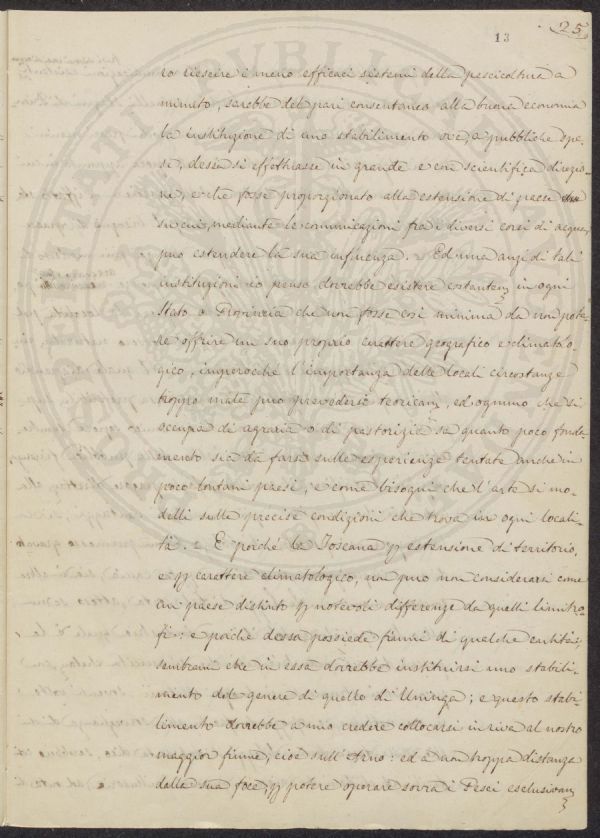 25
13
ro riescire i meno efficaci sistemi della pescicoltura a
minuto, sarebbe del pari consentanea alla buona economia
la instituzione di uno stabilimento ove, a pubbliche spe-
se, dessa si effettuasse in grande e con scientifica direzio-
ne, e che fosse proporzionato alla estensione di paese
su cui, mediante le comunicazioni fra i diversi corsi di acque,
puo estendere la sua influenza. Ed una anzi di tali
instituzioni io penso dovrebbe esistere in ogni
Stato o Provincia che non fosse così minima da non pote-
re offrire un suo proprio carattere geografico e climatolo-
gico, imperocchè l'importanza delle locali circostanze
troppo male puo prevedersi ed ognuno che si
occupa di agraria o di pastorizia sa quanto poco fonda-
mento sia da farsi sulle esperienze tentate anche in
poco lontani paesi, e come bisogni che l'arte si mo-
delli sulle precise condizioni che trova in ogni locali-
tà. E poichè la Toscana estensione di territorio,
e carattere climatologico, non puo non considerarsi come
un paese distinto notevoli differenze da quelli limitro-
fi; e poichè dessa possiede fiumi di qualche entità,
sembrami che in essa dovrebbe instituirsi uno stabili-
mento del genere di quello di Uninga; e questo stabi-
limento dovrebbe a mio credere collocarsi in riva al nostro
maggior fiume, cioè sull'Arno: ed a non troppa distanza
dalla sua foce, potere operare sovra i Pesci